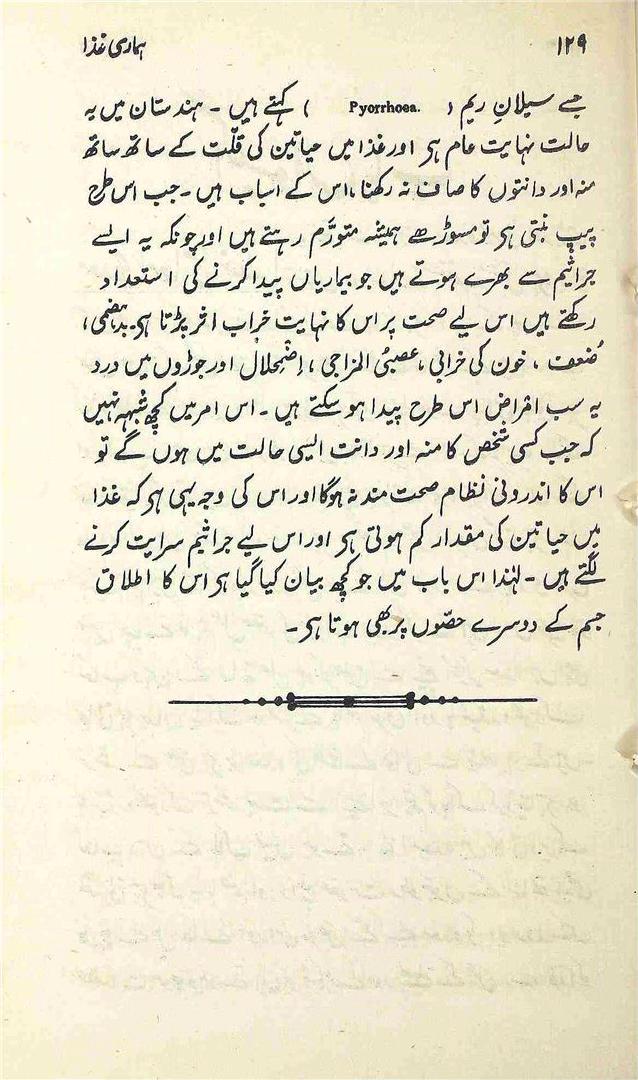 ۱۲۹ ہماری غذا
جسے سیلانِ ریم ( Pyorrhoea. ) کہتے ہیں ۔ ہندستان میں یہ
حالت نہایت عام ہی اور غذا میں حیاتین کی قلّت کے ساتھ ساتھ
منہ اور دانتوں کا صاف نہ رکھنا، اس کے اسباب ہیں ۔ جب اس طرح
پیپ بنتی ہی تو مسوڑھے ہمیشہ متورَّم رہتے ہیں اور چونکہ یہ ایسے
جراثیم سے بھرے ہوتے ہیں جو بیماریاں پیدا کرنے کی استعداد
رکھتے ہیں اس لیے صحت پر اس کا نہایت خراب اثر پڑتا ہی۔ بدہضمی،
ضُعف ، خون کی خرابی، عصبیُ المزاجی ، اِضمِحلال اور جوڑوں میں درد
یہ سب امراض اس طرح پیدا ہو سکتے ہیں ۔ اس امر میں کچھ شُبہہ نہیں
کہ جب کسی شخص کا منہ اور دانت ایسی حالت میں ہوں گے تو
اس کا اندرونی نظام صحت مند نہ ہوگا اور اس کی وجہ یہی ہی کہ غذا
میں حیاتین کی مقدار کم ہوتی ہی اور اس لیے جراثیم سرایت کرنے
لگتے ہیں ۔ لہٰذا اس باب میں جو کچھ بیان کیا گیا ہی اس کا اطلاق
جسم کے دوسرے حصّوں پر بھی ہوتا ہی ۔